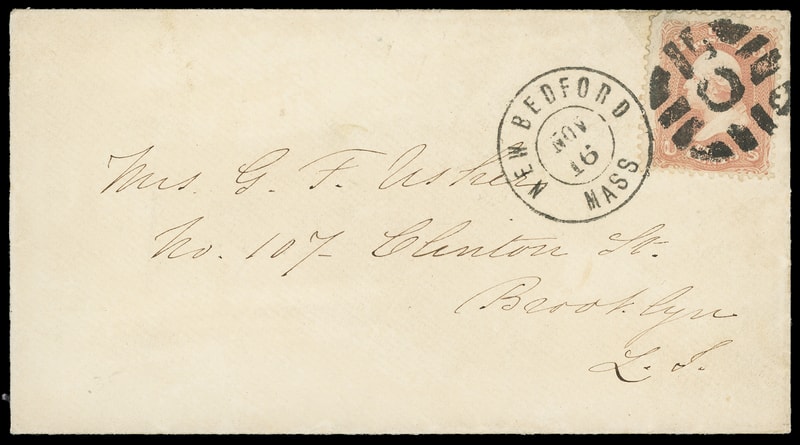 NEW BEDFORD
NOV
16
MASS
Mrs. G. F. Usher
No. 107 Clinton St.
Brooklyn
L. I.